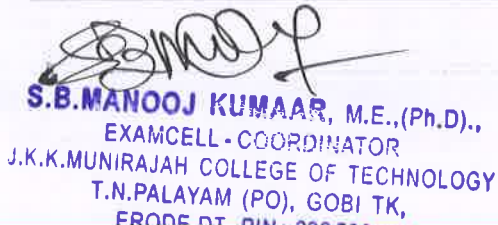 S.B.MANOOJ KUMAAR, M.E.,(Ph.D).,
EXAMCELL - COORDINATOR
J.K.K.MUNIRAJAH COLLEGE OF TECHNOLOGY
T.N.PALAYAM (PO), GOBI TK,
ERODE DT, PIN